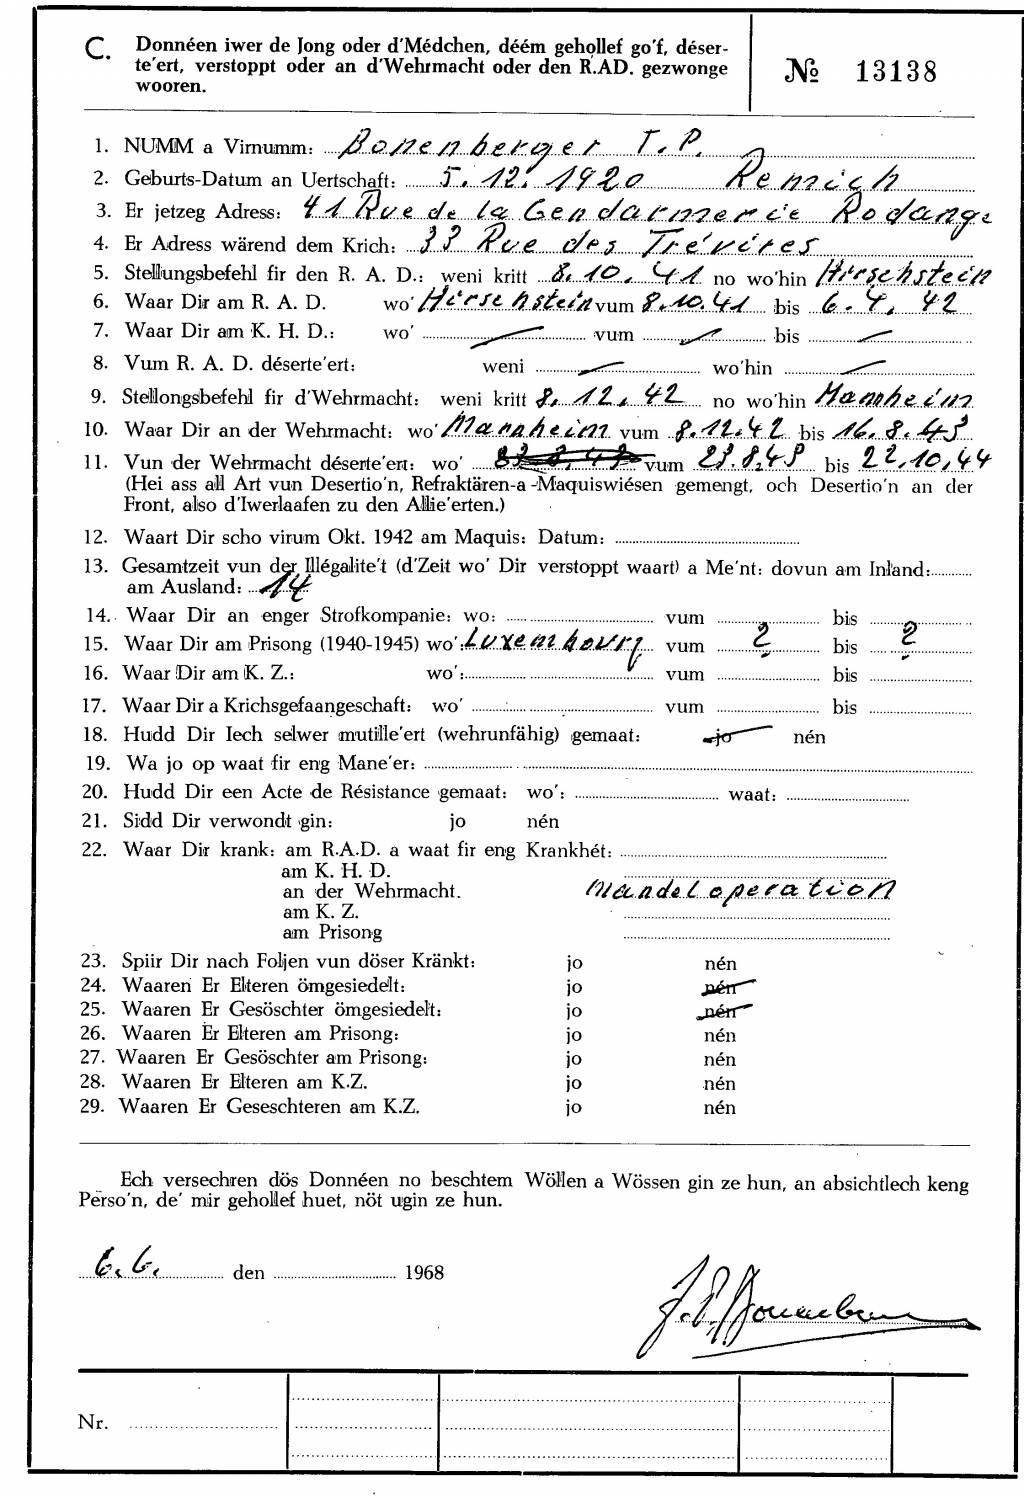 C. Donnéen iwer de Jong oder d'Médchen, déém gehollef go'f, déser-
te'ert, verstoppt oder an d'Wehrmacht oder den R.AD. gezwonge
wooren.
№ 13138
1. NUMM a Virnumm: Bonenberger J.P.
2. Geburts-Datum an Uertschaft: 5.12.1920 Remich
3. Er jetzeg Adress: 41 Rue de la Gendarmerie Rodange
4. Er Adress wärend dem Krich: 33 Rue des Trévires
5. Stellungsbefehl fir den R. A. D.: weni kritt 8.10.41 no wo'hin Hirschstein
6. Waar Dir am R. A. D. wo' Hirschstein vum 8.10.41 bis 6.4.42
7. Waar Dir am K. H. D.: wo' vum bis
8. Vum R. A. D. déserte'ert: weni wo'hin
9. Stellongsbefehl fir d'Wehrmacht: weni kritt 8.12.42 no wo'hin Mannheim
10. Waar Dir an der Wehrmacht: wo' Mannheim vum 8.12.42 bis 16.8.43
11. Vun der Wehrmacht déserte'ert: wo' vum 23.8.43 bis 22.10.44
(Hei ass all Art vun Desertio'n, Refraktären-a-Maquiswiésen gemengt, och Desertio'n an der
Front, also d'Iwerlaafen zu den Allie'erten.)
12. Waart Dir scho virum Okt. 1942 am Maquis: Datum:
13. Gesamtzeit vun der Illégalite't (d'Zeit wo' Dir verstoppt waart) a Me'nt: dovun am Inland:
am Ausland: 14
14. Waar Dir an enger Strofkompanie: wo: vum bis
15. Waar Dir am Prisong (1940-1945) wo': Luxembourg vum ? bis ?
16. Waar Dir am K. Z.: wo': vum bis
17. Waar Dir a Krichsgefaangeschaft: wo' vum bis
18. Hudd Dir Iech selwer mutille'ert (wehrunfähig) gemaat: jo nén
19. Wa jo op waat fir eng Mane'er:
20. Hudd Dir een Acte de Résistance gemaat: wo': waat:
21. Sidd Dir verwondt gin: jo nén
22. Waar Dir krank: am R.A.D. a waat fir eng Krankhét:
am K. H. D.
an der Wehrmacht. Mandeloperation
am K. Z.
am Prisong
23. Spiir Dir nach Foljen vun döser Kränkt: jo nén
24. Waaren Er Elteren ömgesiedelt: jo nén
25. Waaren Er Gesöschter ömgesiedelt: jo nén
26. Waaren Er Elteren am Prisong: jo nén
27. Waaren Er Gesöschter am Prisong: jo nén
28. Waaren Er Elteren am K.Z. jo nén
29. Waaren Er Geseschteren am K.Z. jo nén
Ech versechren dös Donnéen no beschtem Wöllen a Wössen gin ze hun, an absichtlech keng
Perso'n, de' mir gehollef huet, nöt ugin ze hun.
6.6. den 1968
J.P. Bonenberger
Nr.